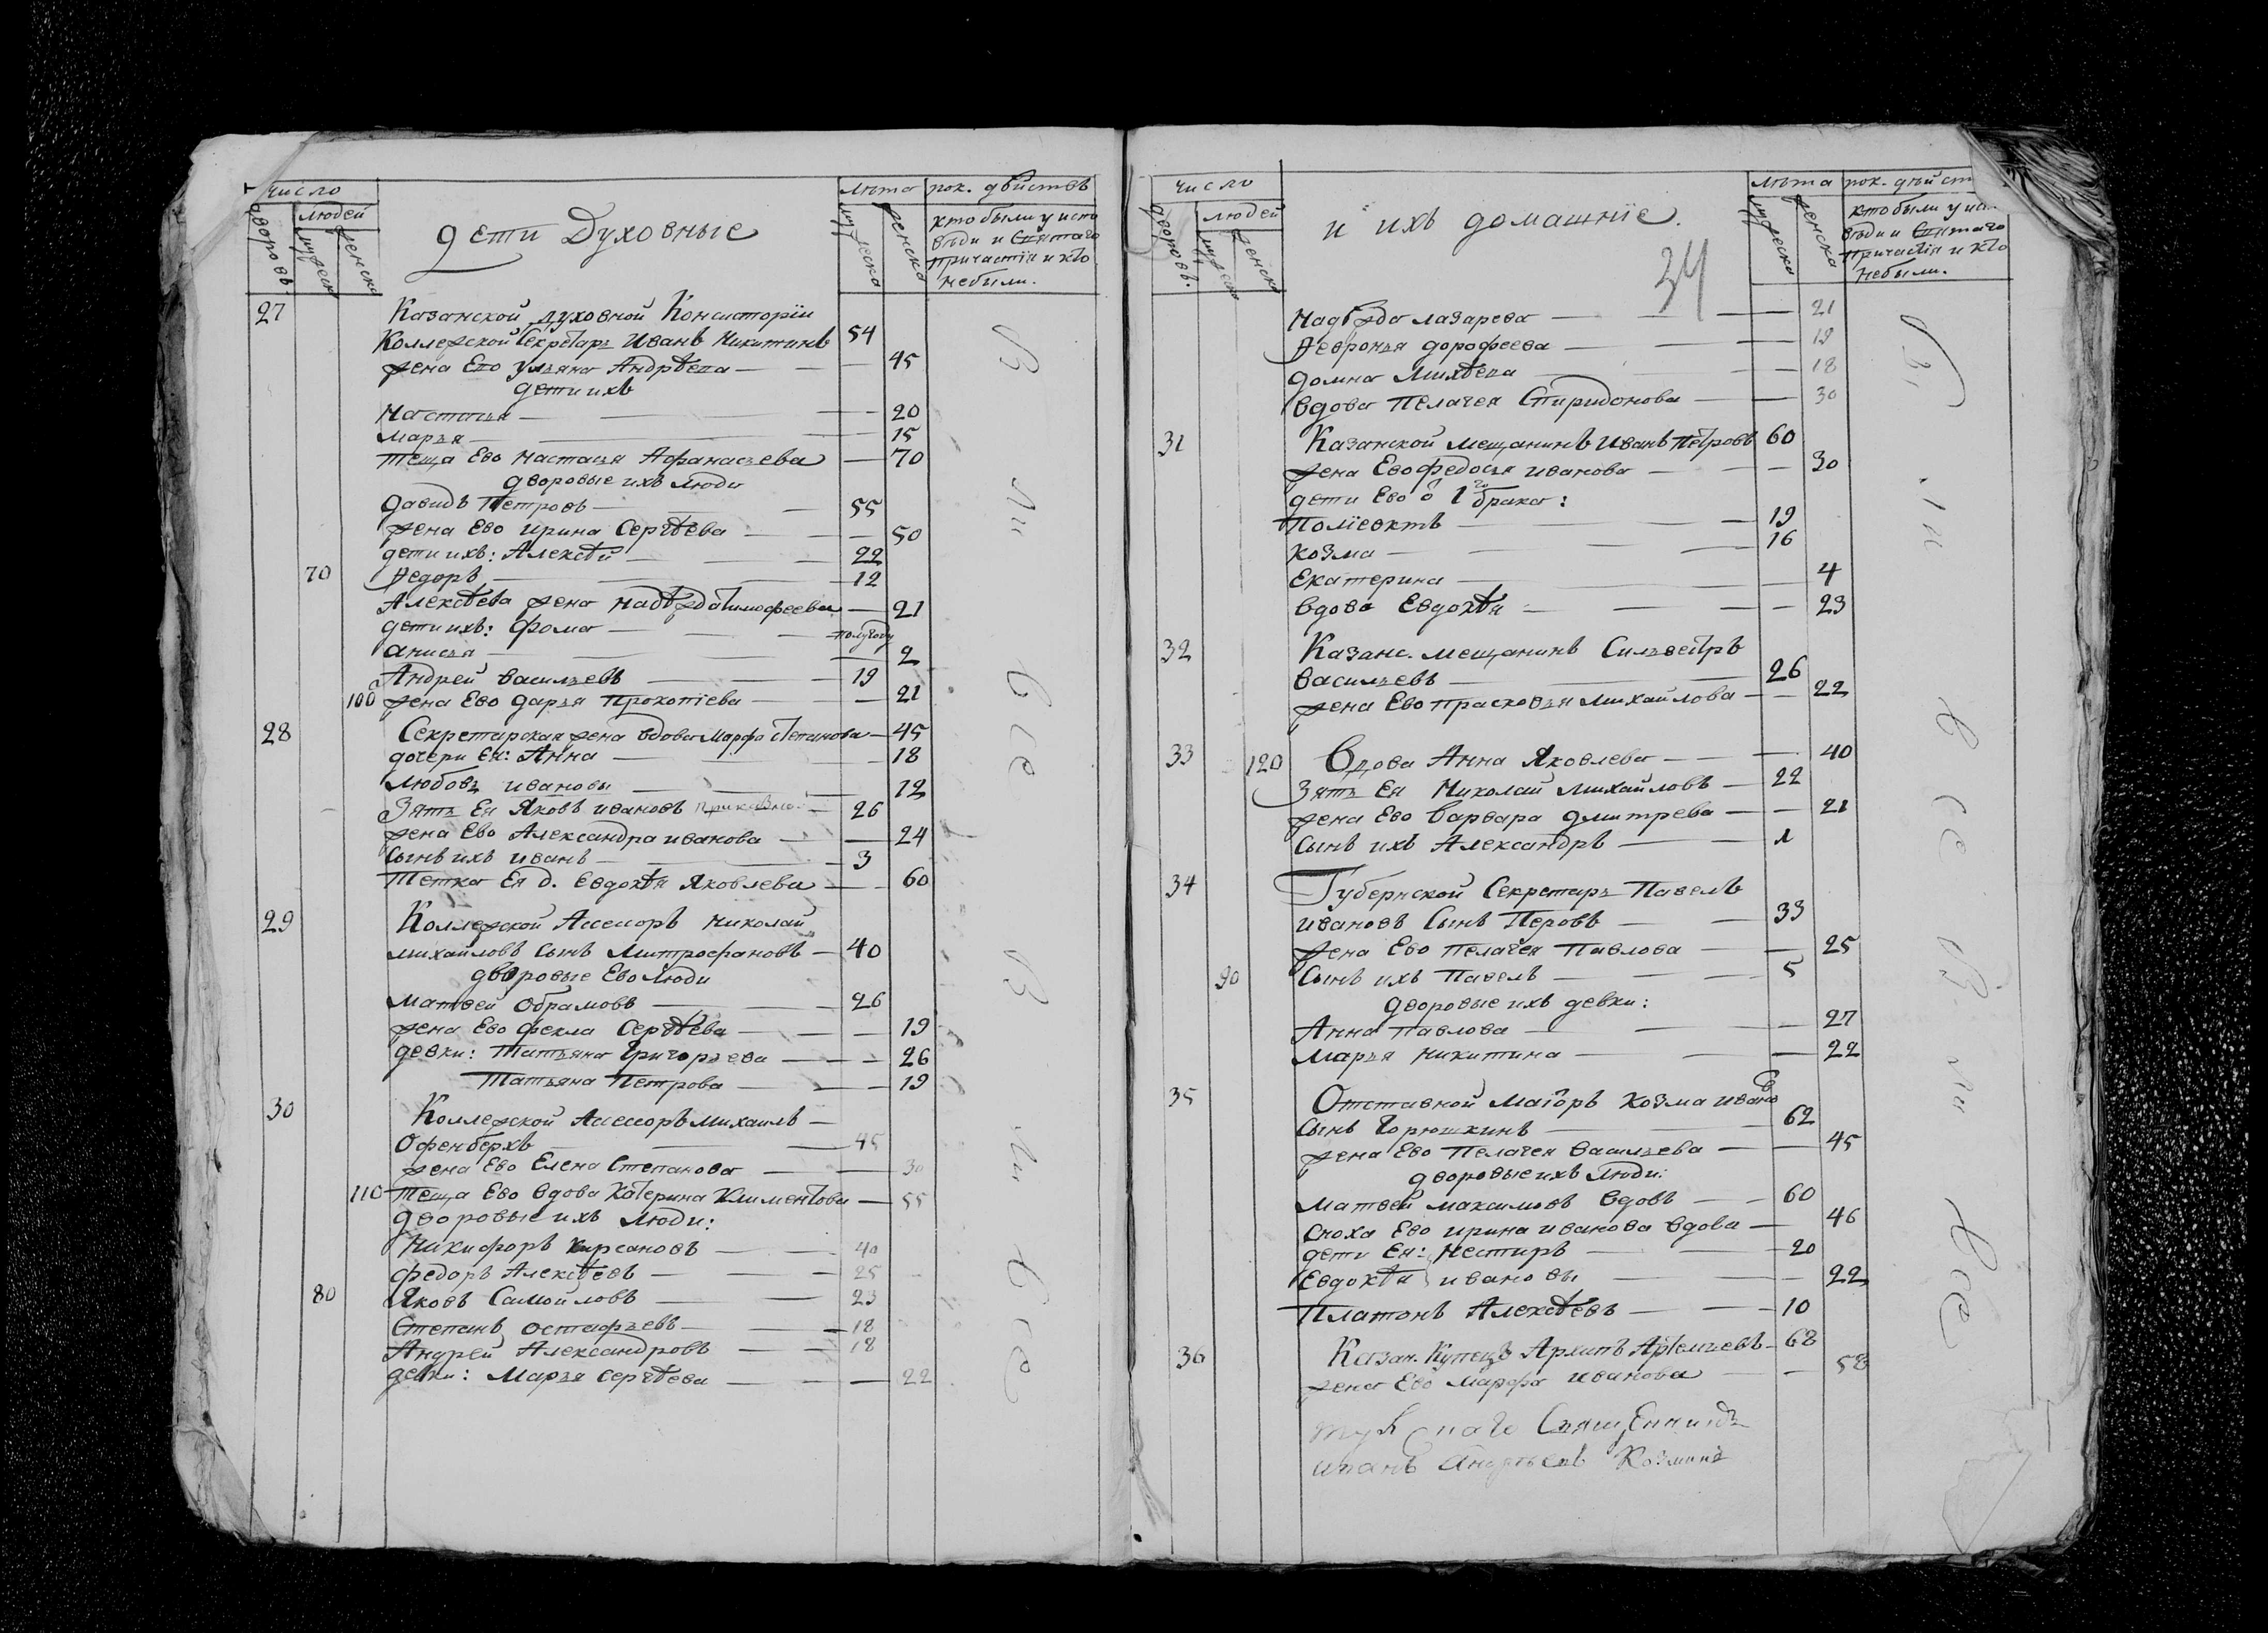 число
дворовъ.
людей
мужеск
женска
дети Духовные
лѣта
мужеска
женска
пок. дѣйствъ
кто были у испо
вѣди и Святаго
причастїя и кто
небыли.
27
Казанской духовной Консисторїи
Коллежской Секретарь Иванъ Никитинъ 54
жена Ево Ульяна Андрѣева — 45
дети ихъ
Настасья — 20
марья — 15
теща Ево Настасья Афанасьева — 70
дворовые ихъ люди
давидъ Петровъ — 55
жена Ево ирина Сергѣева — 50
дети ихъ: Алексѣй — 22
70 Федоръ — 12
Алексѣева жена Надѣжда тимофеева — 21
дети ихъ: фома — полугоду
анисья — 2
Андрей васильевъ — 19
100 жена Ево дарья Прокопїева — 21
28 Секретарская жена вдова Марфа Степанова — 45
дочери Ея: Анна — 18
Любовь ивановы — 12
Зять Ея Яковъ ивановъ — 26
жена Ево Александра иванова — 24
Сынъ ихъ иванъ — 3
Тетка Ея д. Евдокѣя Яковлева — 60
29 Коллежской Асессоръ Николай
михайловъ Сынъ Митрофановъ — 40
дворовые Ево Люди
матвей Обрамовъ — 26
жена Ево фекла Сергѣева — 19
девки: Татьяна Григорьева — 26
Татьяна Петрова — 19
30 Коллежской Асессоръ михаилъ —
Офенберхъ — 45
жена Ево Елена Степанова — 30
110 теща Ево вдова Катерина Климентова — 55
дворовые ихъ люди:
Никифоръ Кирсановъ — 40
федоръ Алексѣевъ — 25
80 Яковъ Самойловъ — 23
Степанъ остафьевъ — 18
Андрей Александровъ — 18
девки: Марья сергѣева — 22
въ
ли
все
въ
ли
все
число
дворовъ.
людей
мужеск
женска
и ихъ домашнїе.
34
лѣта
мужеска
женска
пок. дѣйст
кто были у ис
вѣди и Святаго
причастїя и кто
небыли.
Надѣжда лазарева — 21
Февронья дорофеева — 19
домна Михѣева — 18
вдова Пелагея Спиридонова — 30
31 Казанской мещанинъ иванъ Петровъ 60
жена Ево федосья иванова — 30
дети Ево о 1го брака:
Полїевктъ — 19
козма — 16
Екатерина — 4
вдова Евдокѣя — 23
32 Казанс. мещанинъ Сильвестръ
васильевъ — 26
жена Ево прасковья михайлова — 22
33 120 Вдова Анна Яковлева — 40
Зять Ея Николай михайловъ — 22
жена Ево варвара дмитрева — 21
Сынъ ихъ Александръ — 1
34 Губернской Секретарь Павелъ
ивановъ Сынъ Перовъ — 33
жена Ево пелагея Павлова — 25
90 Сынъ ихъ Павелъ — 5
дворовые ихъ девки:
Анна павлова — 27
марья никитина — 22
35 Отставной Маїоръ Козма ивановъ
Сынъ Горюшкинъ — 62
жена Ево Пелагея васильева — 45
дворовые ихъ люди:
матвей максимовъ вдовъ — 60
сноха Ево ирина иванова вдова — 46
дети Ея: Нестиръ — 20
Евдокѣя ивановы — 22
Платонъ Алексѣевъ — 10
36 Казан. Купецъ Архипъ Артемьевъ — 68
жена Ево Марфа иванова — 58
Священникъ
иванъ Андрѣевъ Козминъ
въ
ли
все
въ
ли
все